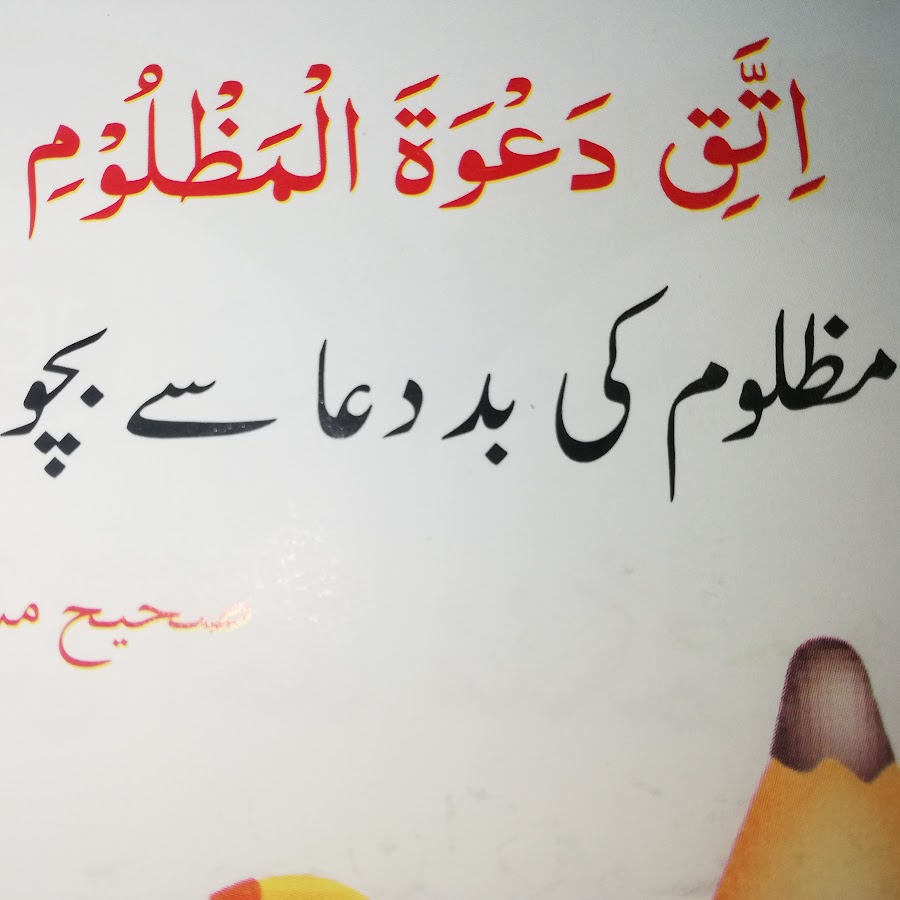 اِتَّقِ دَعْوَةَ الْمَظْلُوْمِ
مظلوم کی بد دعا سے بچو
صحیح